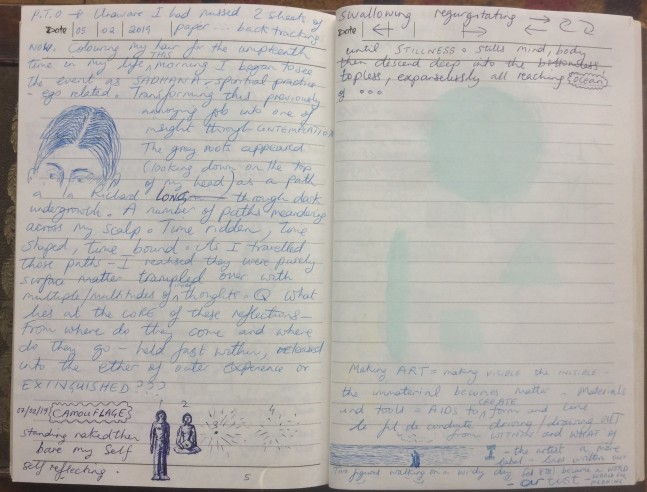 P.T.O → Unaware I had missed 2 sheets of
Date 05 02 2019 paper... back tracking
now. Colouring my hair for the umpteenth
time in my life, THIS morning I began to see
the event as SADHANA - spiritual practice
- ego related. Transforming this previously
annoying job into one of
insight through CONTEMPLATION
The gray roots appeared
(looking down on the top
of my head) as a path
a la Richard LONG through dark
undergrowth. A number of paths meandering
across my scalp. Time ridden, time
shaped, time bound. As I travelled
those paths - I realised they were purely
surface matter trampled over with
multiple/multitudes of thoughts. Q What
lies at the CORE of these reflections -
from where do they come and where
do they go - held fast within, released
into the ether of outer experience or
EXTINGUISHED???
07/02/19 CAMOUFLAGE
standing naked then
bare my Self
self reflecting.
1 2
3 4
5
swallowing regurgitating
Date
until STILLNESS = stills mind, body
then descend deep into the bottomless
topless, expanselessly all reaching ocean
Making ART = making VISIBLE the invisible -
the immaterial becomes matter - Materials
and tools = AIDS to CREATE form and
to
from WITHIN and
I - the artist a mere
label - lies within our
Two figures walking on a windy day
artist